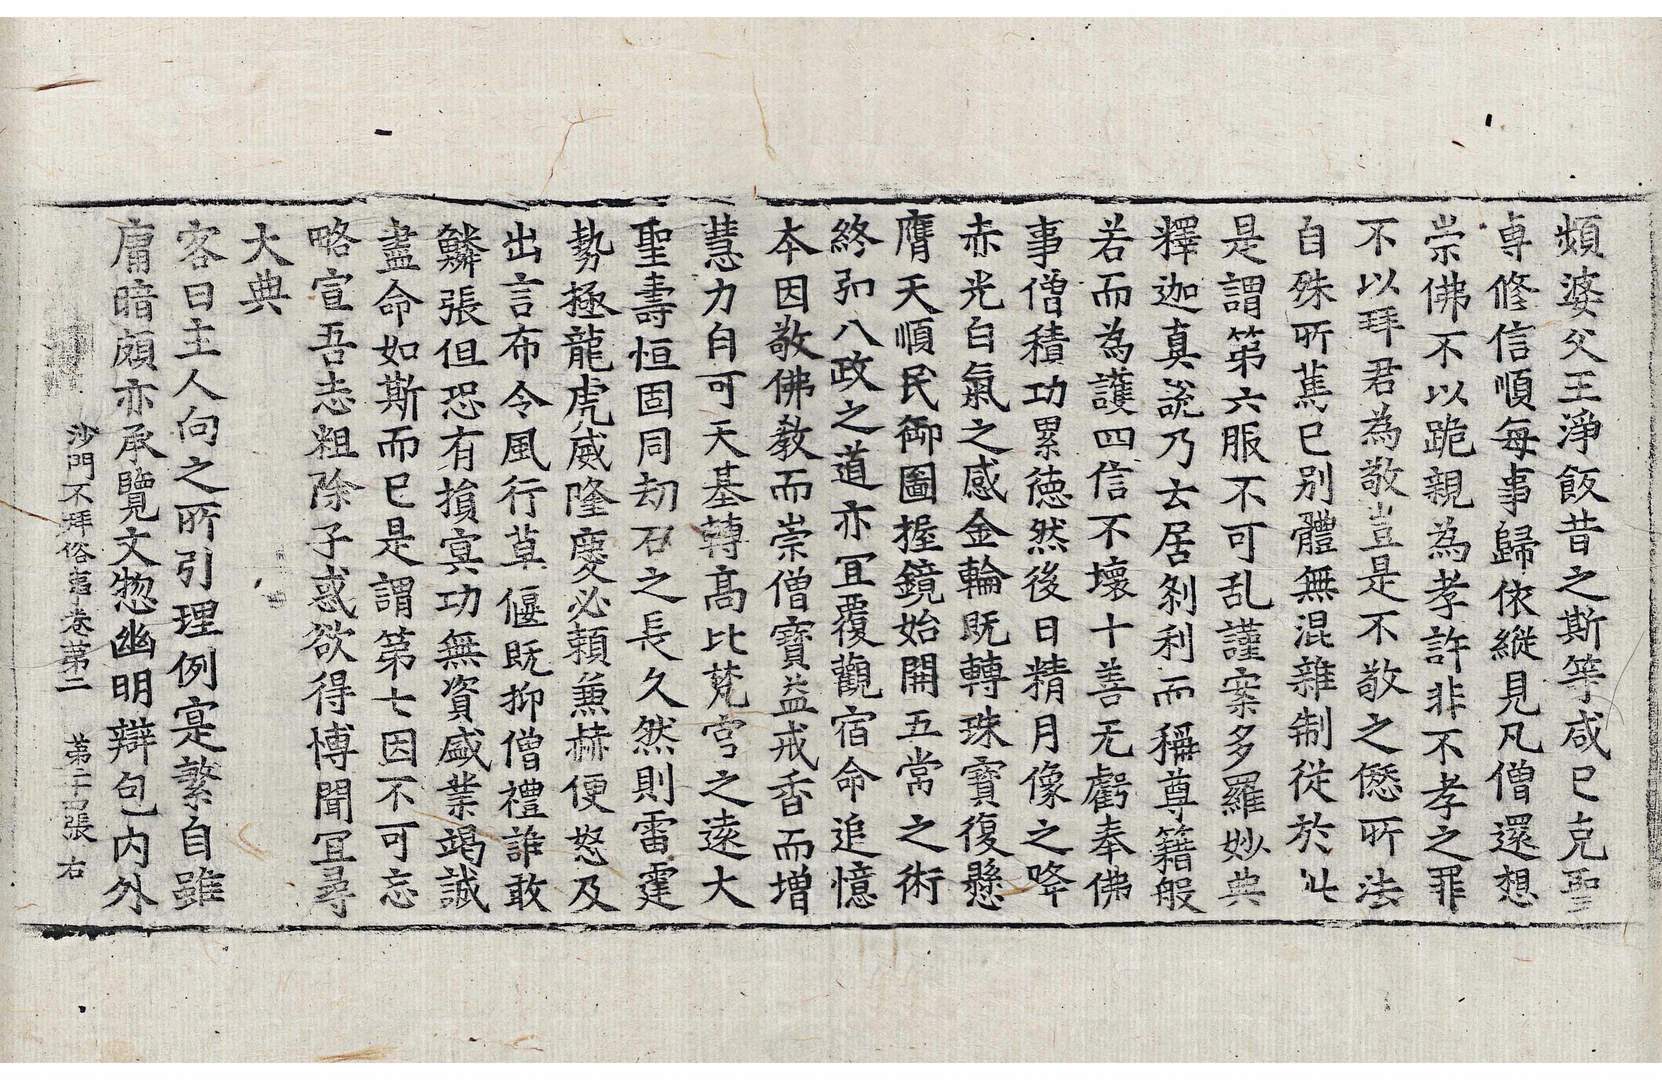 頻婆父王淨飯昔之斯等咸已克聖
專修信順每事歸依縱見凡僧還想
崇佛不以跪親為孝許非不孝之罪
不以拜君為敬豈是不敬之愆所法
自殊所篤已別體無混雜制從於此
是謂第六服不可乱謹案多羅妙典
釋迦真說乃去居刹利而稱尊籍般
若而為護四信不壞十善无虧奉佛
事僧積功累德然後日精月像之降
赤光白氣之感金輪既轉珠寶復懸
膺天順民御圖握鏡始開五常之術
終弘八政之道亦冝覆觀宿命追憶
本因敬佛教而崇僧寶益戒香而增
慧力自可天基轉高比梵宫之遠大
聖壽恒固同劫石之長久然則雷霆
勢極龍虎威隆慶必賴兼赫便怒及
出言布令風行草偃既抑僧禮誰敢
鱗張但恐有損冥功無資盛業竭誠
盡命如斯而已是謂第七因不可忘
略宣吾志粗除子惑欲得博聞冝尋
大典
客曰主人向之所引理例寔繁自雖
庸暗頗亦承覽文惣幽明辯包內外
沙門不拜俗事卷第二　第二十四張　右